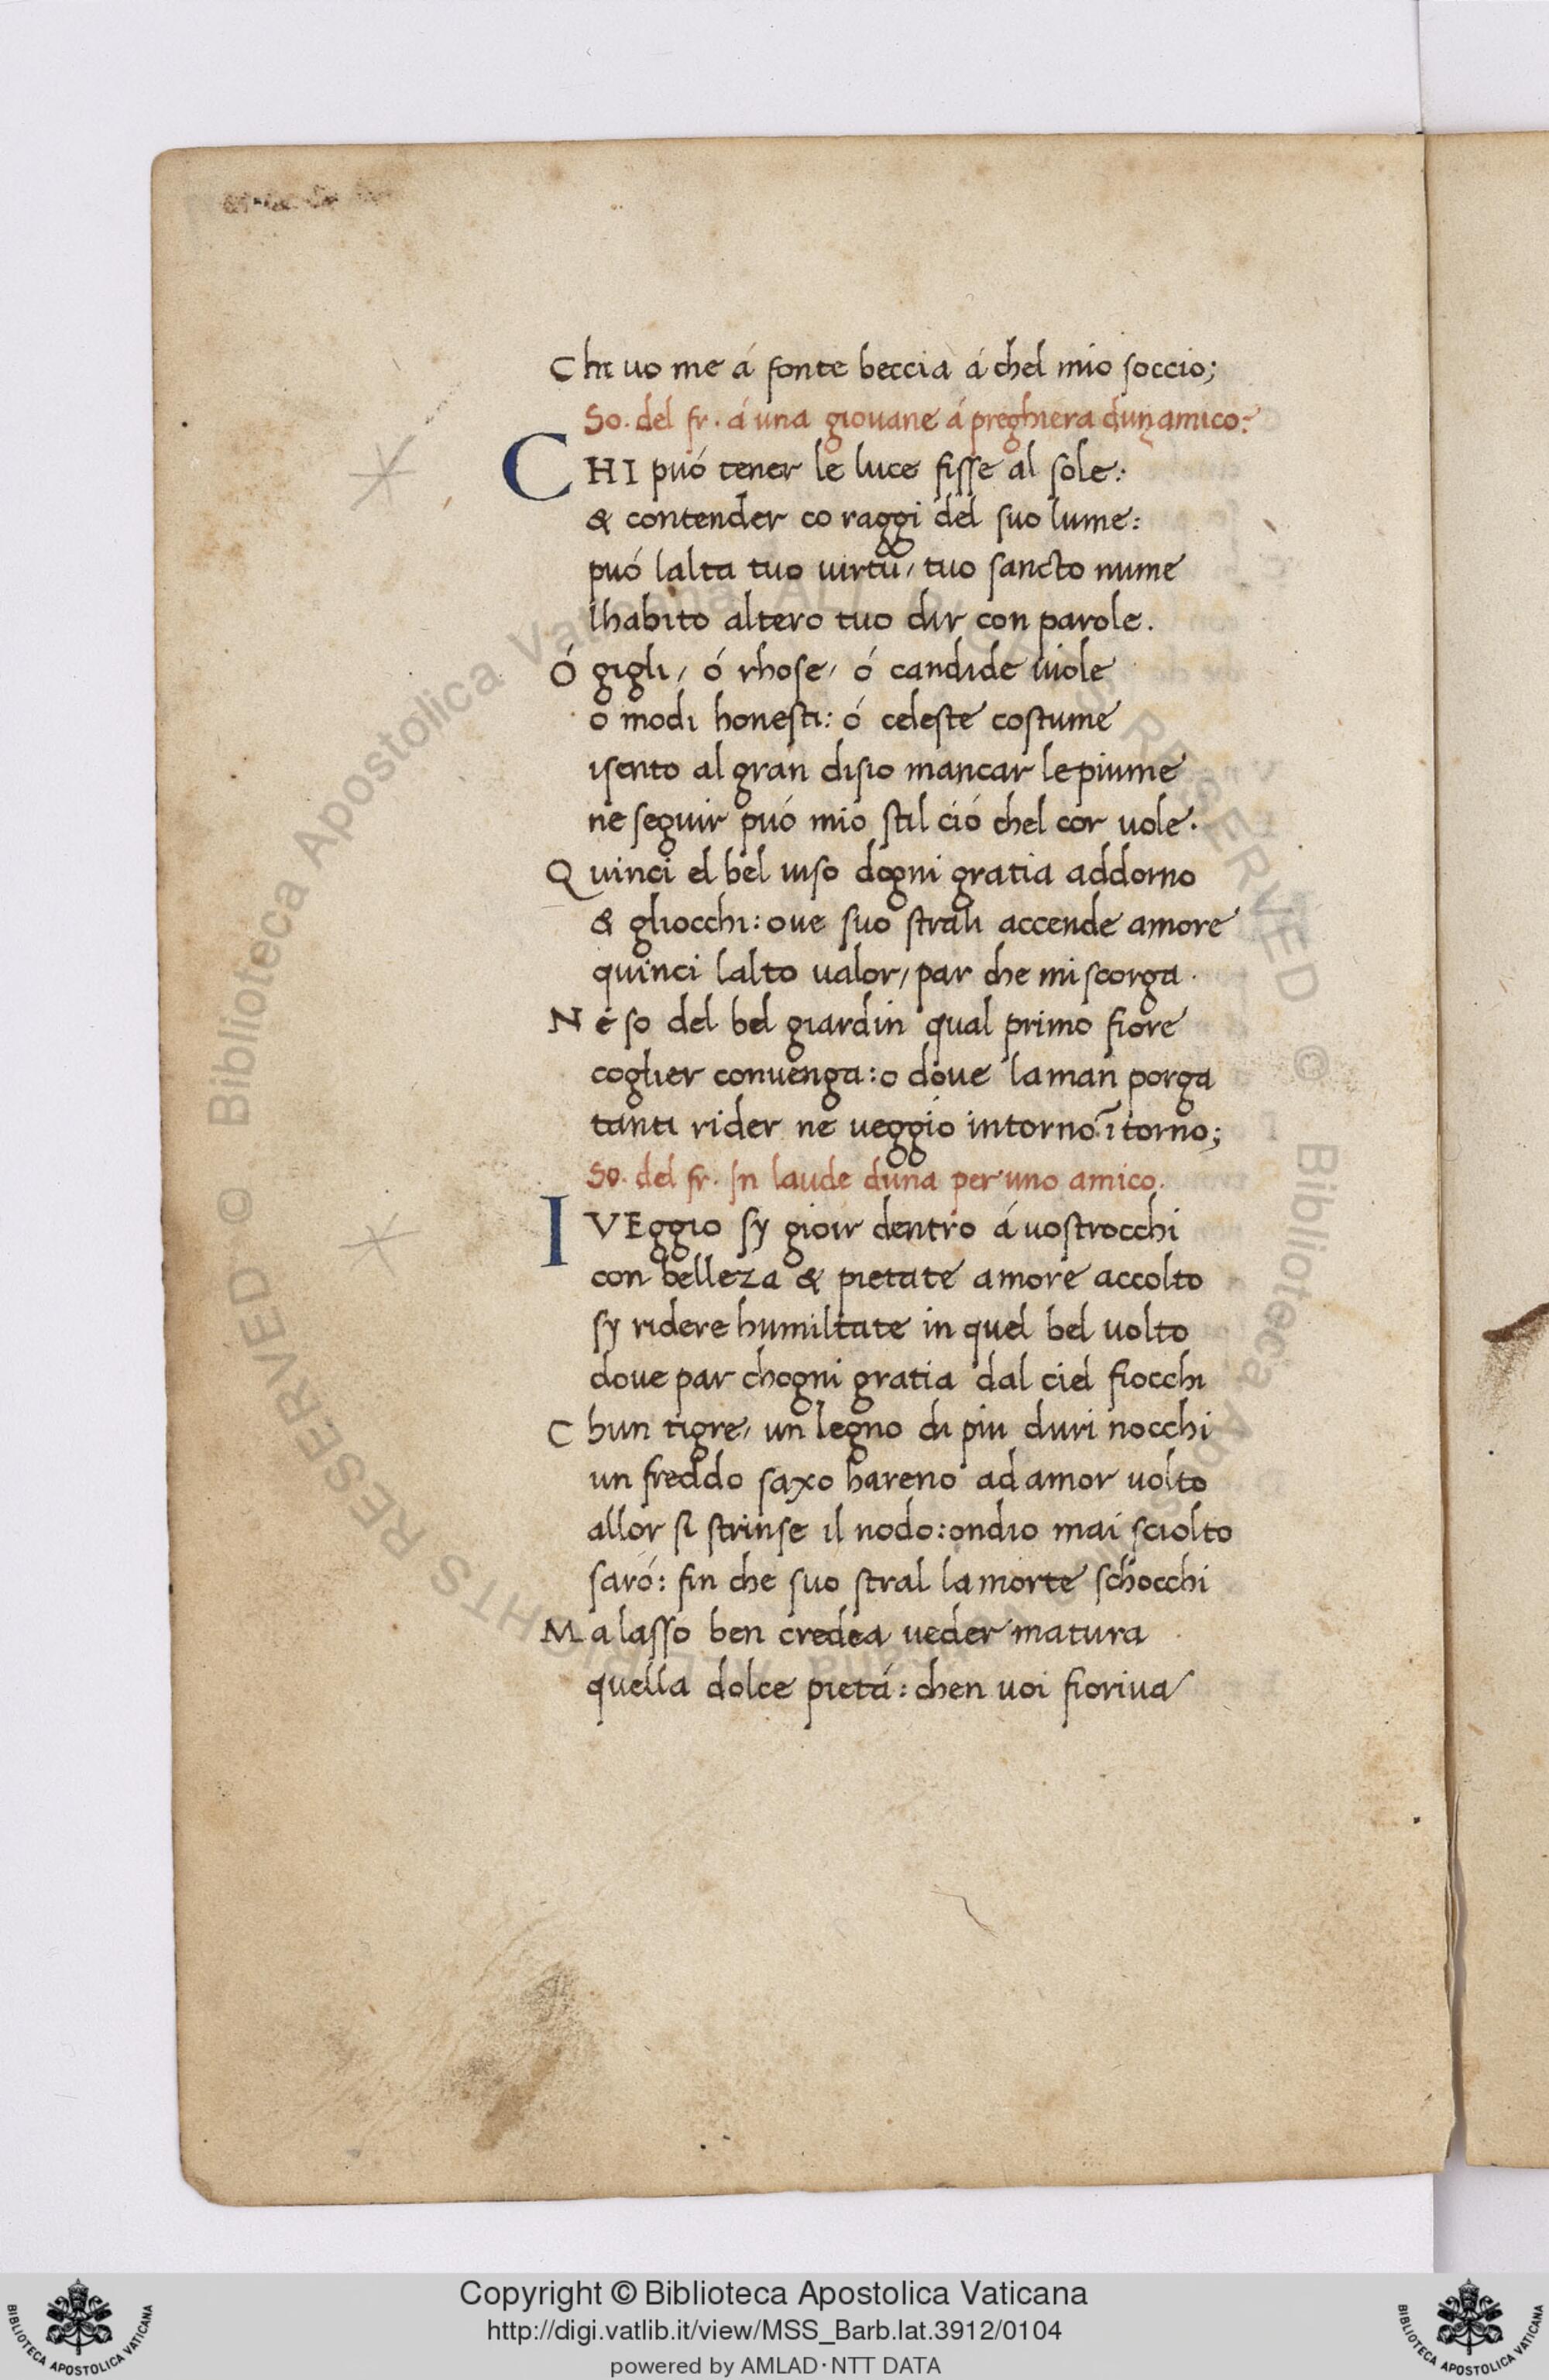 Chi uo me á fonte beccia á chel mio soccio;
So. del fr. á una giouane á preghiera dun amico:
CHI puó tener le luce fisse al sole:
& contender co raggi del suo lume:
puó lalta tuo uirtú, tuo sancto nume
lhabito altero tuo dir con parole.
Ó gigli, ó rhose, ó candide uiole
o modi honesti: ó celeste costume
isento al gran disio mancar le piume
ne seguir puó mio stil ció chel cor uole.
Quinci el bel uiso dogni gratia addorno
& gliocchi: oue suo strali accende amore
quinci lalto ualor, par che mi scorga.
Ne so del bel giardin qual primo fiore
coglier conuenga: o doue la man porga
tanti rider ne ueggio intorno ītorno;
So. del fr. In laude duna per uno amico.
I VEggio sy gioir dentro á uostrocchi
con belleza & pietate amore accolto
sy ridere humiltate in quel bel uolto
doue par chogni gratia dal ciel fiocchi
Chun tigre, un legno di piu duri nocchi
un freddo saxo hareno ad amor uolto
allor si strinse il nodo: ondio mai sciolto
saró: fin che suo stral la morte schocchi
Ma lasso ben credea ueder matura
quella dolce pietá: chen uoi fioriua
Copyright © Biblioteca Apostolica Vaticana
http://digi.vatlib.it/view/MSS_Barb.lat.3912/0104
powered by AMLAD·NTT DATA